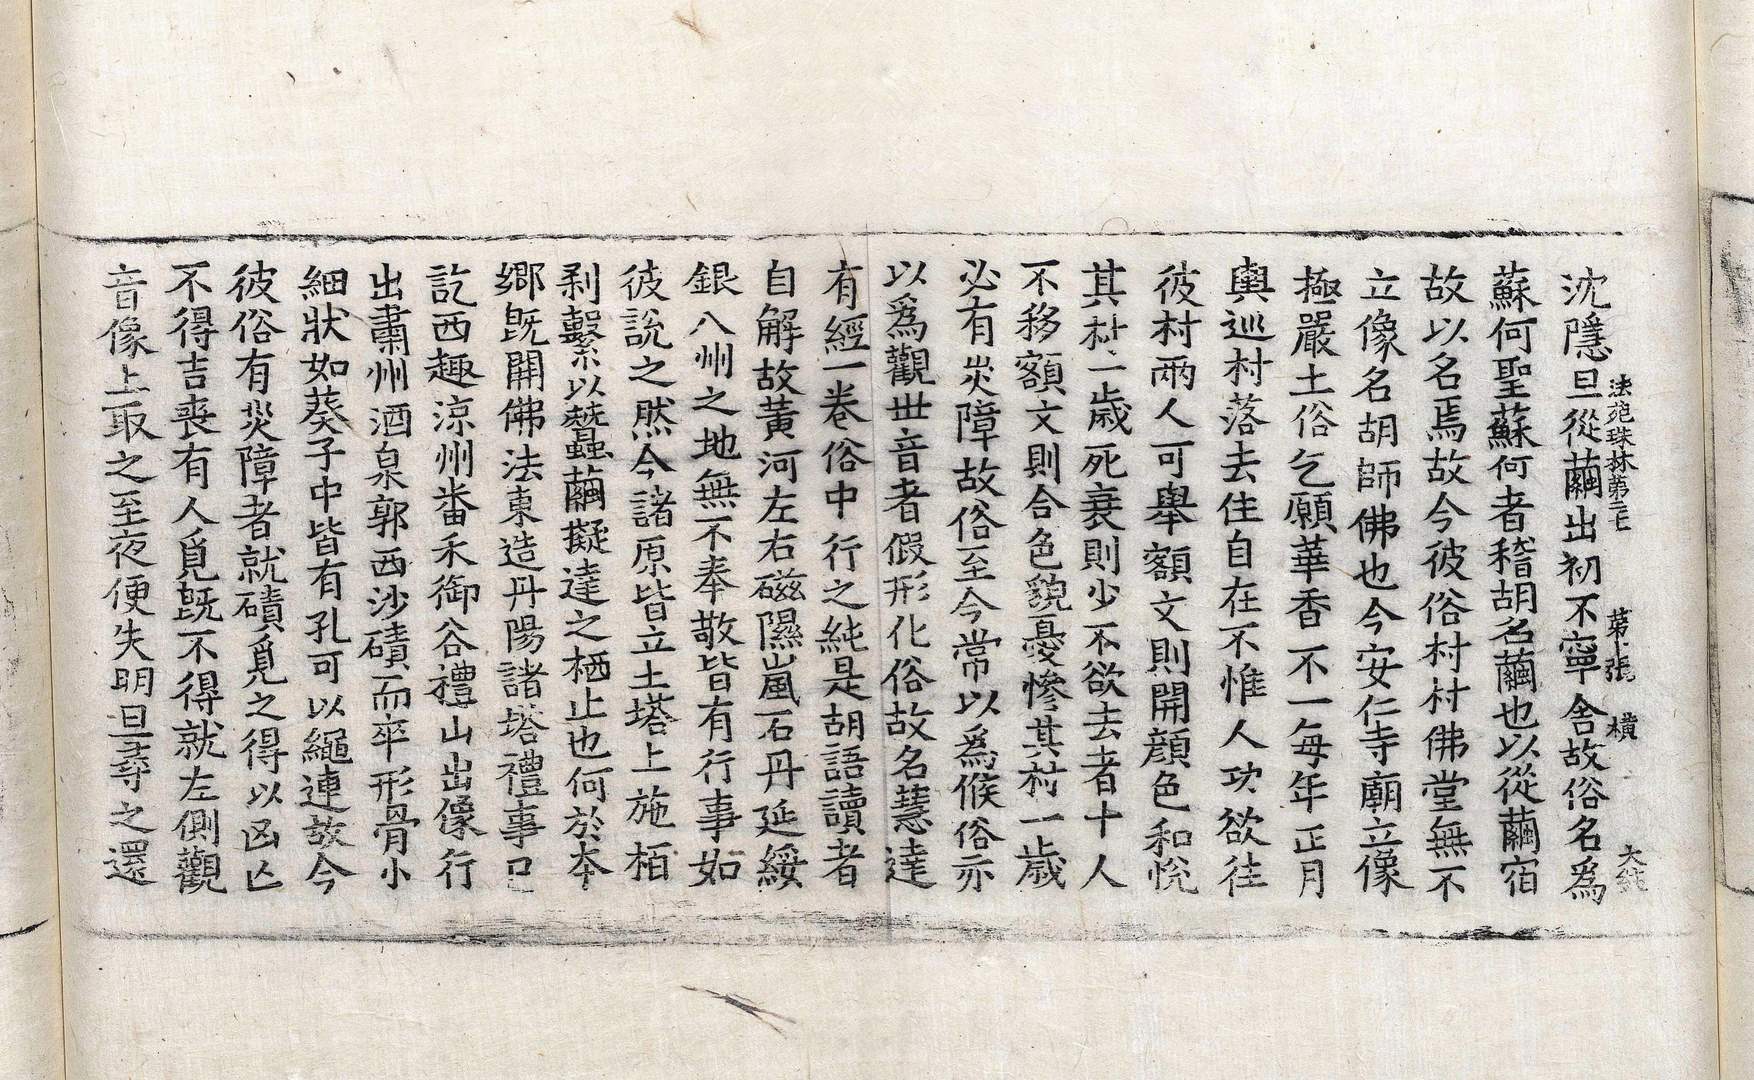 法苑珠林第三十七 第十張 橫 大純
沈隱旦從繭出初不寧舍故俗名爲
蘇何聖蘇何者稽胡名繭也以從繭宿
故以名焉故今彼俗村村佛堂無不
立像名胡師佛也今安仁寺廟立像
極嚴土俗乞願華香不一每年正月
輿巡村落去住自在不惟人功欲往
彼村兩人可舉額文則開顔色和悅
其村一歲死衰則少不欲去者十人
不移額文則合色貌憂慘其村一歲
必有災障故俗至今常以爲候俗亦
以爲觀世音者假形化俗故名慧達
有經一卷俗中行之純是胡語讀者
自解故黃河左右磁隰嵐石丹延綏
銀八州之地無不奉敬皆有行事如
彼說之然今諸原皆立土塔上施柏
刹繫以蠶繭擬達之栖止也何於本
鄉旣開佛法東造丹陽諸塔禮事已
訖西趣涼州番禾御谷禮山出像行
出肅州酒泉郭西沙磧而卒形骨小
細狀如葵子中皆有孔可以繩連故今
彼俗有災障者就磧覓之得以凶亡
不得吉喪有人覓旣不得就左側觀
音像上取之至夜便失明旦尋之還